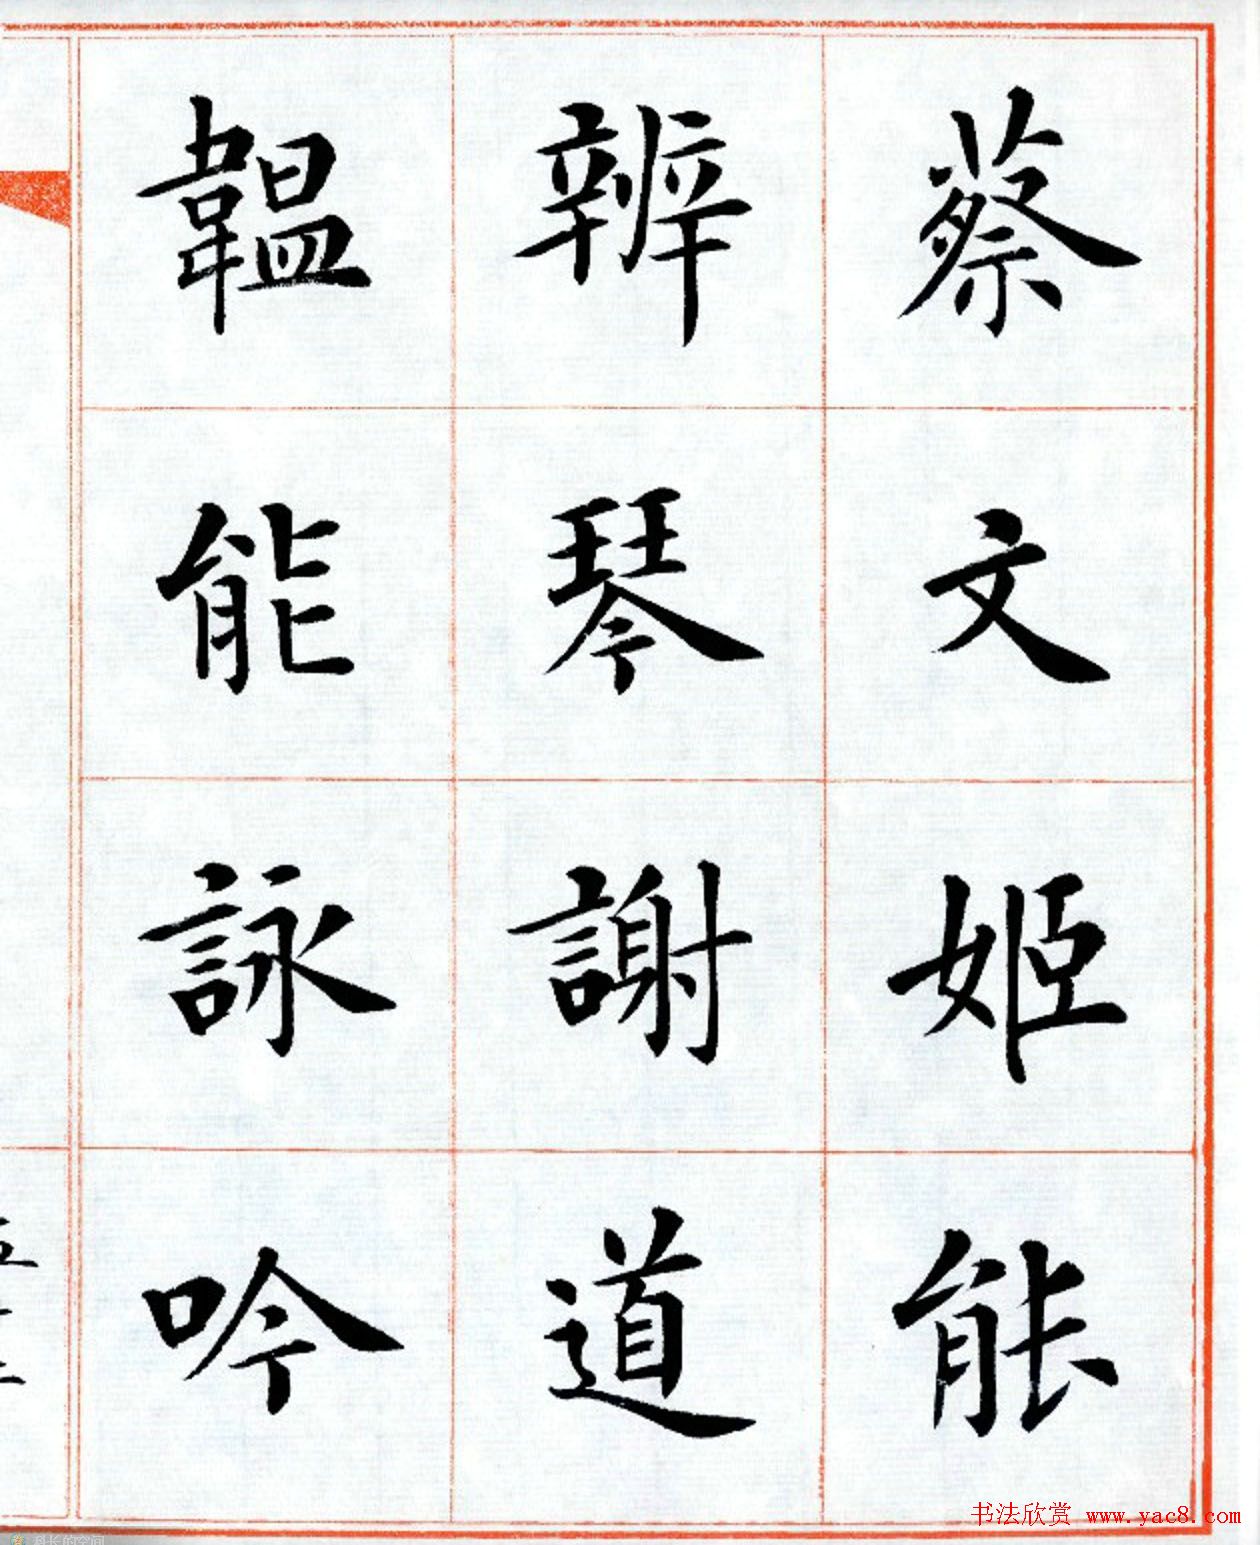 蔡文姬能
辨琴謝道
韞能詠吟
五十二
书法欣赏 www.yac8.com